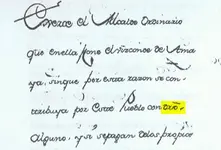 Exerce el Alcalde Ordinario
que enella pone el Vizconde de Ama
ya, sin que por esta razon se con
tribuya por Este Pueblo con dro
alguno, y si se pagan delos propios